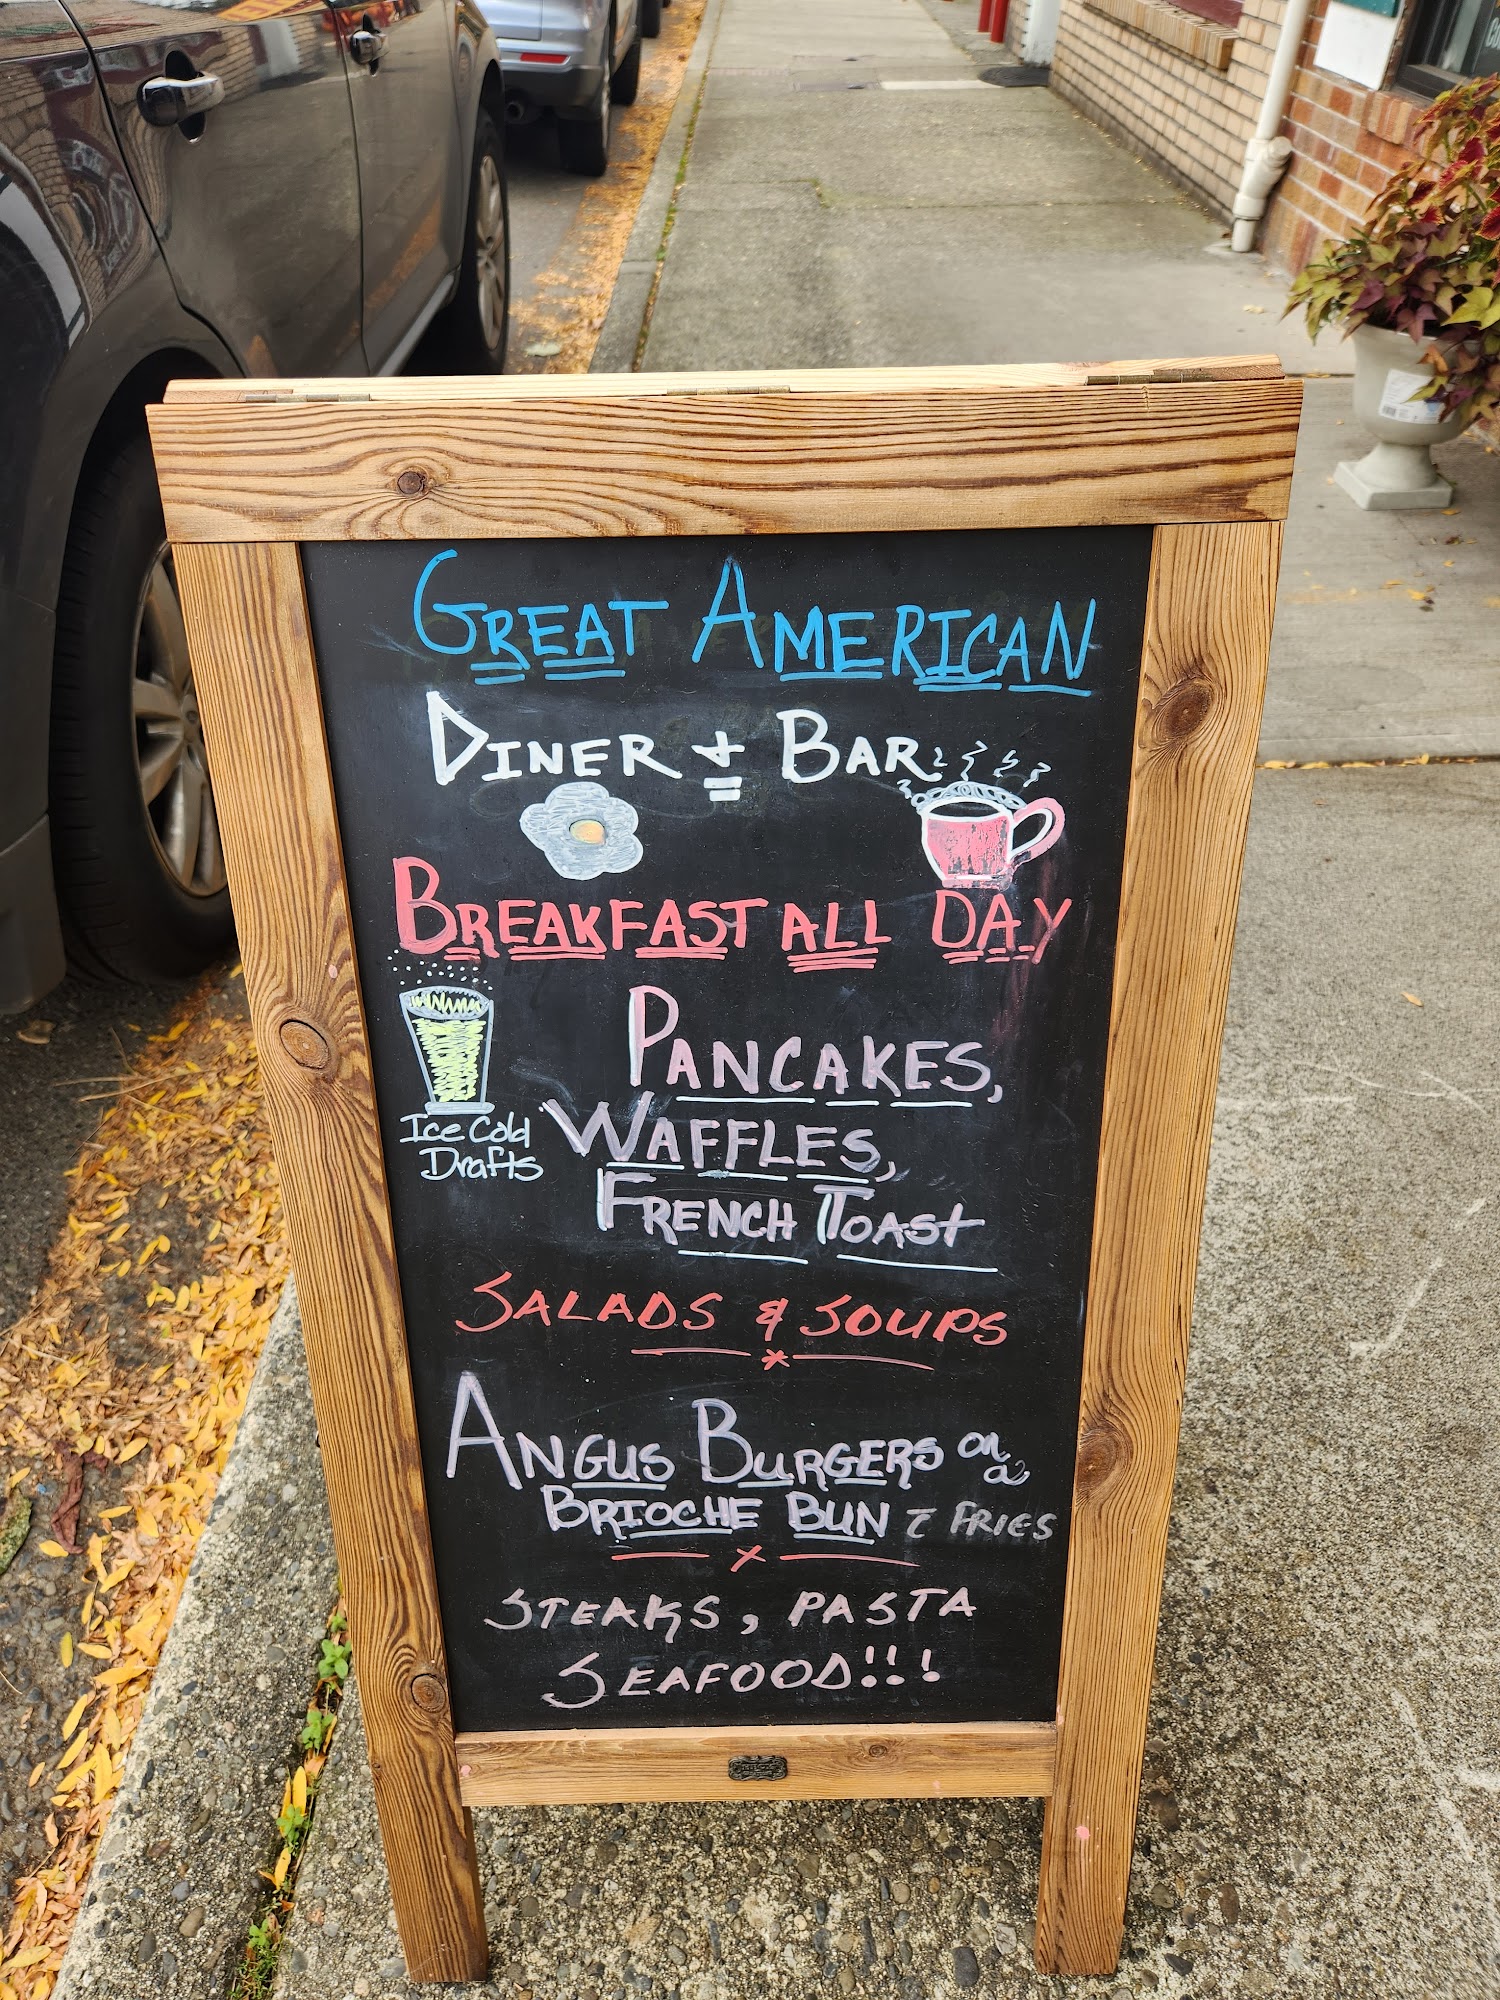 GREAT AMERICAN
DINER + BAR
BREAKFAST ALL DAY
PANCAKES,
WAFFLES,
FRENCH TOAST
Ice Cold
Drafts
SALADS & SOUPS
ANGUS BURGERS on a
BRIOCHE BUN FRIES
STEAKS, PASTA
SEAFOOD!!!